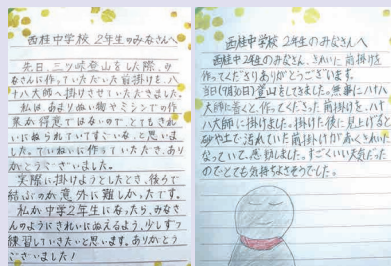 西桂中学校 2年生のみなさんへ
先日、三ツ峠登山をした際、み
なさんに作っていただいた前掛けを、八
十八大師へ掛けさせていただきました。
私は、あまりぬい物やミシンでの作
業が得意ではないので、とてもきれ
いにぬられていてすごいな、と思いま
した。ていねいに作っていただき、あり
がとうございました。
実際に掛けようとしたとき、後ろで
結ぶのが意外に難しかったです。
私が中学2年生になったら、みなさ
んのようにきれいにぬえるよう、少しずつ
練習していきたいと思います。ありがとう
ございました!
西桂中学校 2年生のみなさんへ
西桂中2年生のみなさん、きれいに前掛けを
作ってくださりありがとうございます。
登山をしてきました。無事に八十八
大師に着くと、作ってくださった前掛けを、八十
八大師に掛けました。掛けた後に見上げると
砂や土で汚れていた前掛けが赤くきれいに
なっていて、感動しました。すごくいい天気だった
のでとても気持ちよさそうでした。